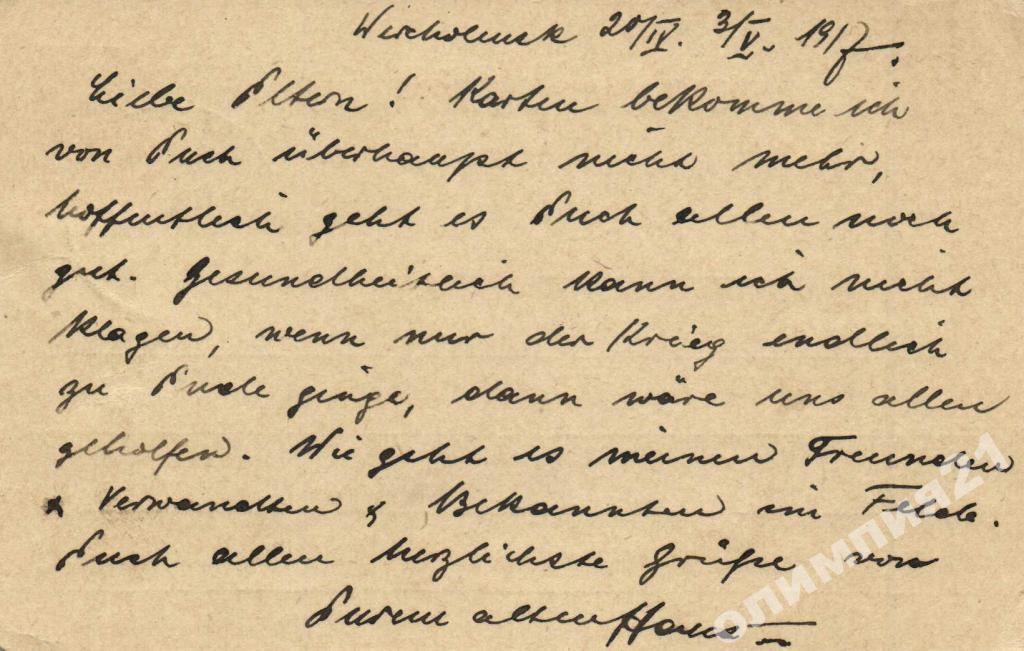 Wercholensk 20/IV. 3/V. 1917.
Liebe Eltern! Karten bekomme ich
von Euch überhaupt nicht mehr,
hoffentlich geht es Euch allen noch
gut. Gesundheitlich kann ich nicht
klagen, wenn nur der Krieg endlich
zu Ende ginge, dann wäre uns allen
geholfen. Wie geht es meinen Freunden
& Verwandten & Bekannten im Felde.
Euch allen herzlichste Grüße von
Eurem alten Hans
олимпия21